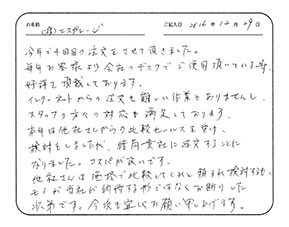 お名前 (有)エスガレージ ご記入日 2016年12月29日
今年で4回目の注文をさせて頂きました。
毎年お客様より会社のデスクでご使用頂いている等、
好評を頂戴しております。
インターネットからの注文も難しい作業もありませんし、
スタッフの方々の対応も満足しております。
本年は他社さんからの比較セールスを受け、
検討をしましたが、結局貴社に注文することに
なりました。コスパが良いです。
他社さんは価格で比較してくれと頼まれ検討するも、
モノが当社が納得する形ではなくお断りした
次第です。今後も宜しくお願い申し上げます。